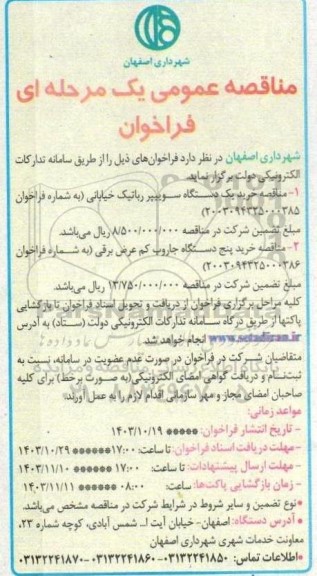 شهرداری اصفهان
مناقصه عمومی یک مرحله ای
فراخوان
شهرداری اصفهان در نظر دارد فراخوان‌های ذیل را از طریق سامانه تدارکات
الکترونیکی دولت برگزار نماید.
۱- مناقصه خرید یک دستگاه سوییپر رباتیک خیابانی (به شماره فراخوان
۲۰۰۳۰۹۴۳۲۵۰۰۰۳۸۵)
مبلغ تضمین شرکت در مناقصه ۸/۵۰۰/۰۰۰/۰۰۰ ریال می‌باشد.
۲- مناقصه خرید پنج دستگاه جاروب کم عرض برقی (به شماره فراخوان
۲۰۰۳۰۹۴۳۲۵۰۰۰۳۸۶)
مبلغ تضمین شرکت در مناقصه ۱۳/۷۵۰/۰۰۰/۰۰۰ ریال می‌باشد.
کلیه مراحل برگزاری فراخوان از دریافت و تحویل اسناد فراخوان تا بازگشایی
پاکتها از طریق درگاه سامانه تدارکات الکترونیکی دولت (ستاد) به آدرس
www.setadiran.ir انجام خواهد شد.
متقاضیان شرکت در فراخوان در صورت عدم عضویت در سامانه، نسبت به
ثبت‌نام و دریافت گواهی امضای الکترونیکی (به صورت برخط) برای کلیه
صاحبان امضای مجاز و مهر سازمانی اقدام لازم را به عمل آورند.
مواعد زمانی:
- تاریخ انتشار فراخوان: ***** ۱۴۰۳/۱۰/۱۹
- مهلت دریافت اسناد فراخوان: تا ساعت: ۱۷:۰۰ ****** ۱۴۰۳/۱۰/۲۹
- مهلت ارسال پیشنهادات: تا ساعت: ۱۷:۰۰ ****** ۱۴۰۳/۱۱/۱۰
- زمان بازگشایی پاکت‌ها: ساعت: ۰۸:۰۰ ****** ۱۴۰۳/۱۱/۱۱
• نوع تضمین و سایر شروط در شرایط شرکت در مناقصه مشخص می‌باشد.
• آدرس دستگاه: اصفهان- خیابان آیت ا... شمس آبادی، کوچه شماره ۲۳،
معاونت خدمات شهری شهرداری اصفهان
• اطلاعات تماس: ۰۳۱۳۲۲۴۱۸۵۰-۰۳۱۳۲۲۴۱۸۶۰-۰۳۱۳۲۲۴۱۸۷۰